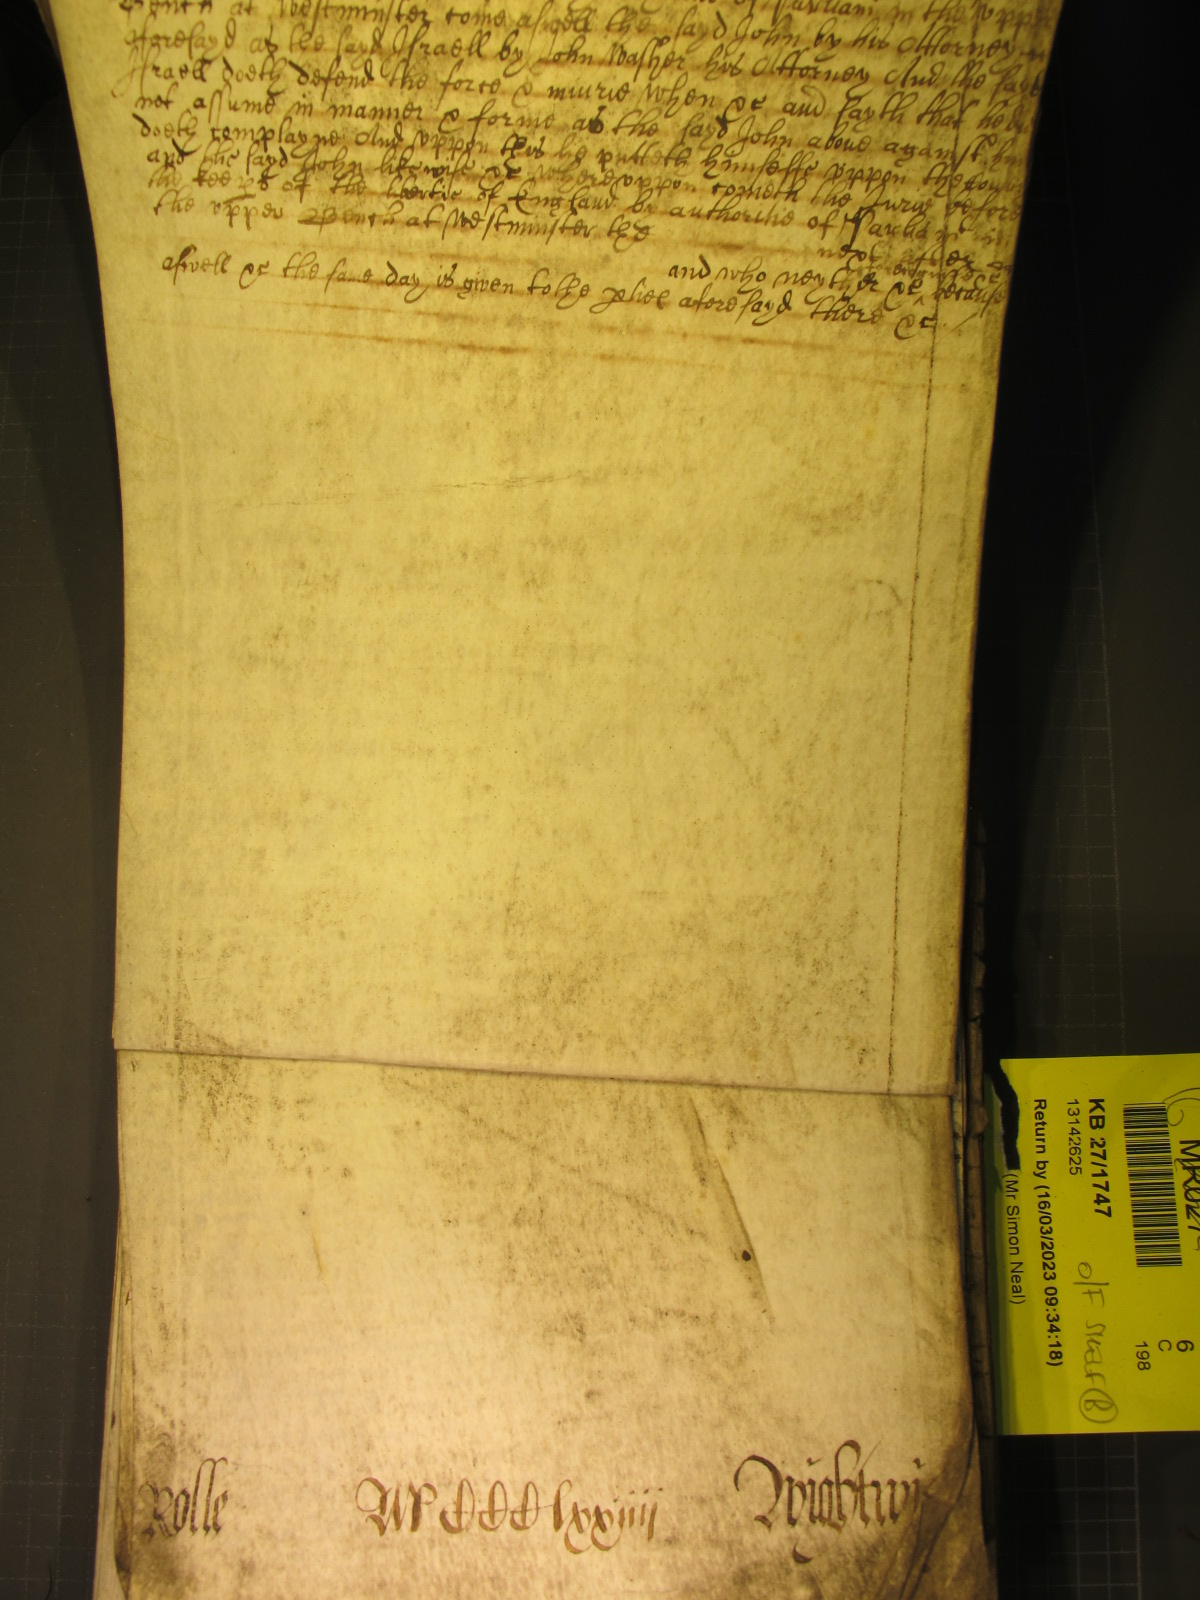 Bench at Westminster come aswell the sayd John by his Attorney
aforesayd as the sayd Israell by John Washer his Attorney And the sayd
Israell doeth defend the force & iniurie when &c and sayth that he did
not assume in manner & forme as the sayd John above against him
doeth complayne And uppon this he putteth himselfe uppon the Countr
and the sayd John likewise &c whereuppon cometh the Jurie before
the keeps of the libertie of England by authoritie of Parliam in
the upper Bench at Westminster the next after
and who neyther &c because
aswell &c the same day is given to the pties aforesayd there &c
Rolle
M CCC lxxiiii
Wightwi
KB 27/1747
13142625
Return by (16/03/2023 09:34:18)
(Mr Simon Neal)
O/F SHELF B
6
C
198